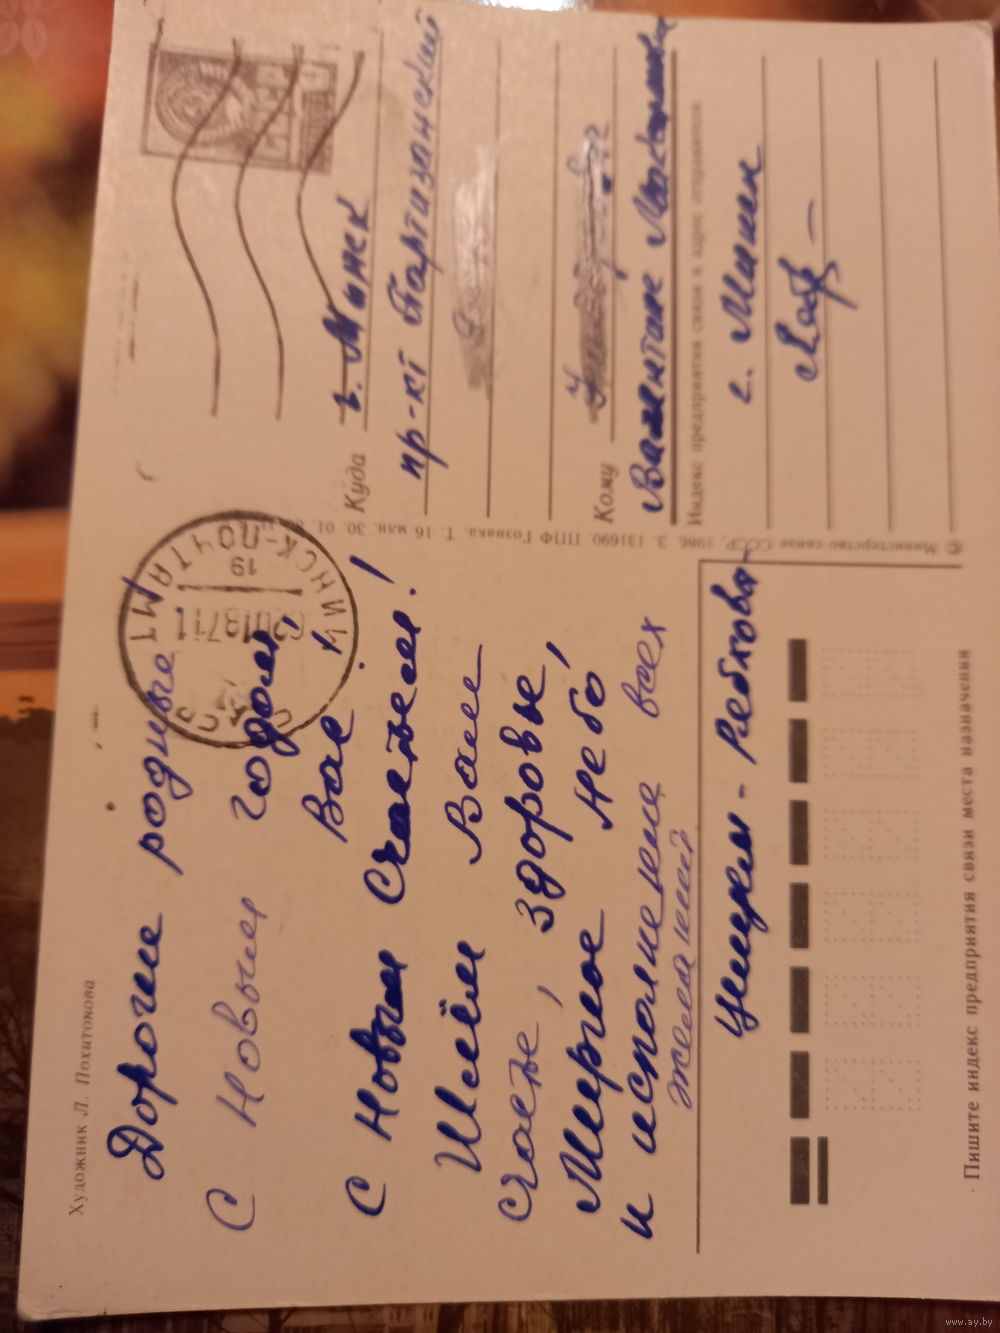 Художник Л. Похитонова
Дорогие родные
С Новым годом,
Вас!
С Новым Счастьем!
Шлём Вам
счастье, здоровье,
Мирное небо
и исполнение всех
желаний
МИНСК-ПОЧТАМТ
19
Куда г. Минск
пр-кт Партизанский
Кому
Валентине
Индекс предприятия связи и адрес отправителя
г. Минск
© Министерство связи СССР. 1986. З. 131690. ППФ Гознака. Т. 16 млн. 30. 01.
Пишите индекс предприятия связи места назначения
www.ay.by